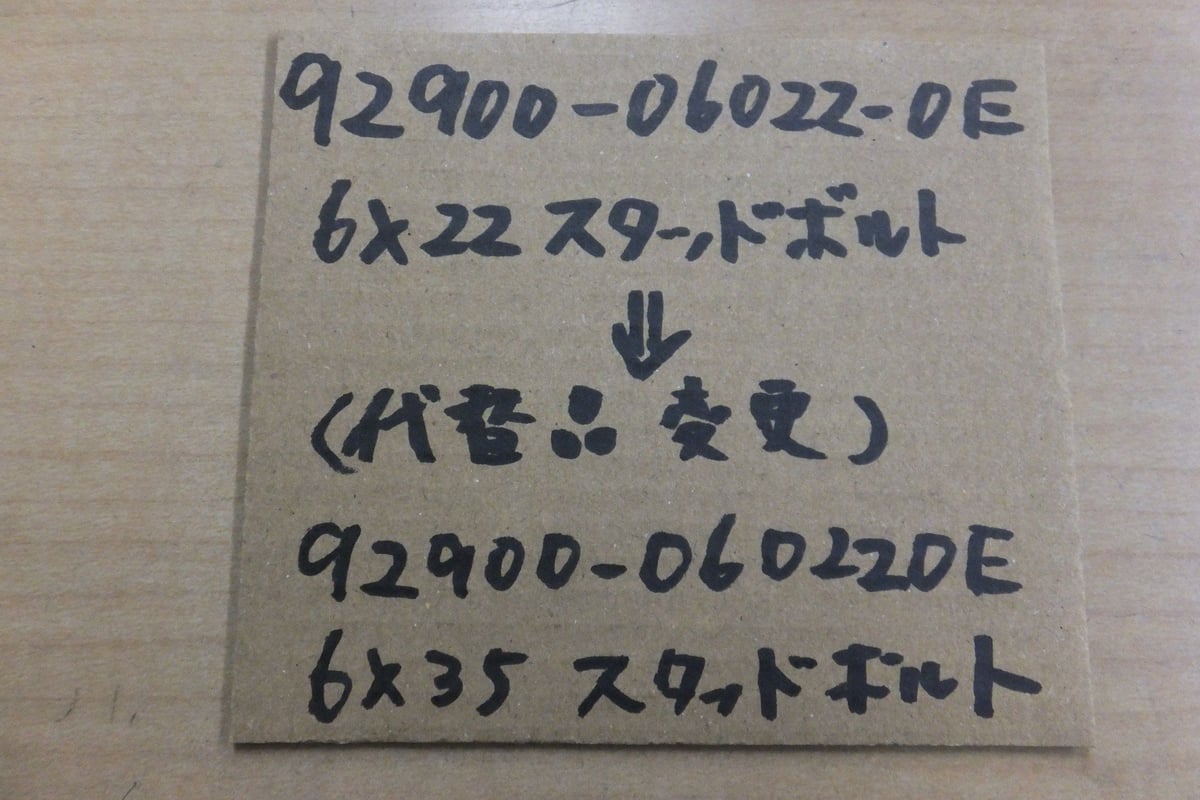 92900-06022-0E
6×22 スタッドボルト
⇓
(代替品 変更)
92900-060220E
6×35 スタッドボルト